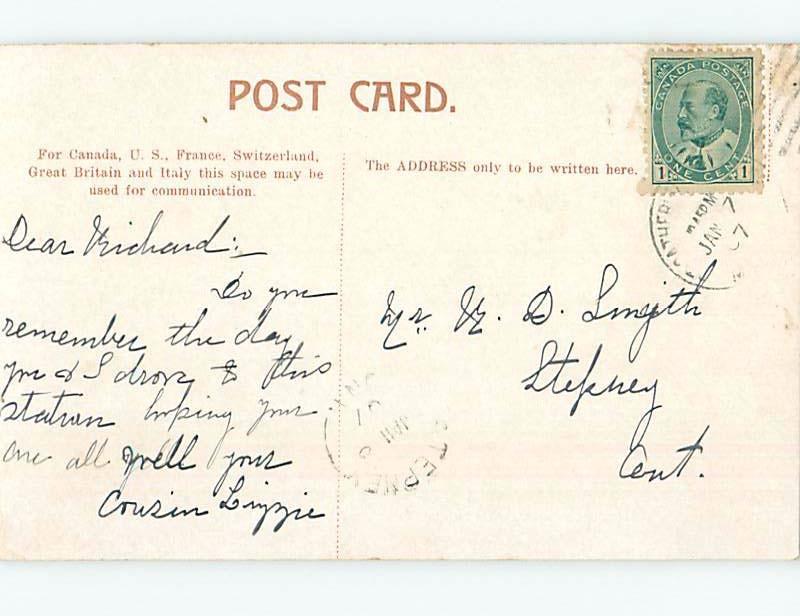 POST CARD.
For Canada, U. S., France, Switzerland,
Great Britain and Italy this space may be
used for communication.
The ADDRESS only to be written here.
CANADA POSTAGE
1 ONE CENT 1
JAN 7
07
Dear Richard:
Do you
remember the day
you & I drove to this
station hoping your
are all well your
Cousin Lizzie
Mr. R. D. Smyth
Stepney
Ont.
STEPNEY
JAN
07
ONT.